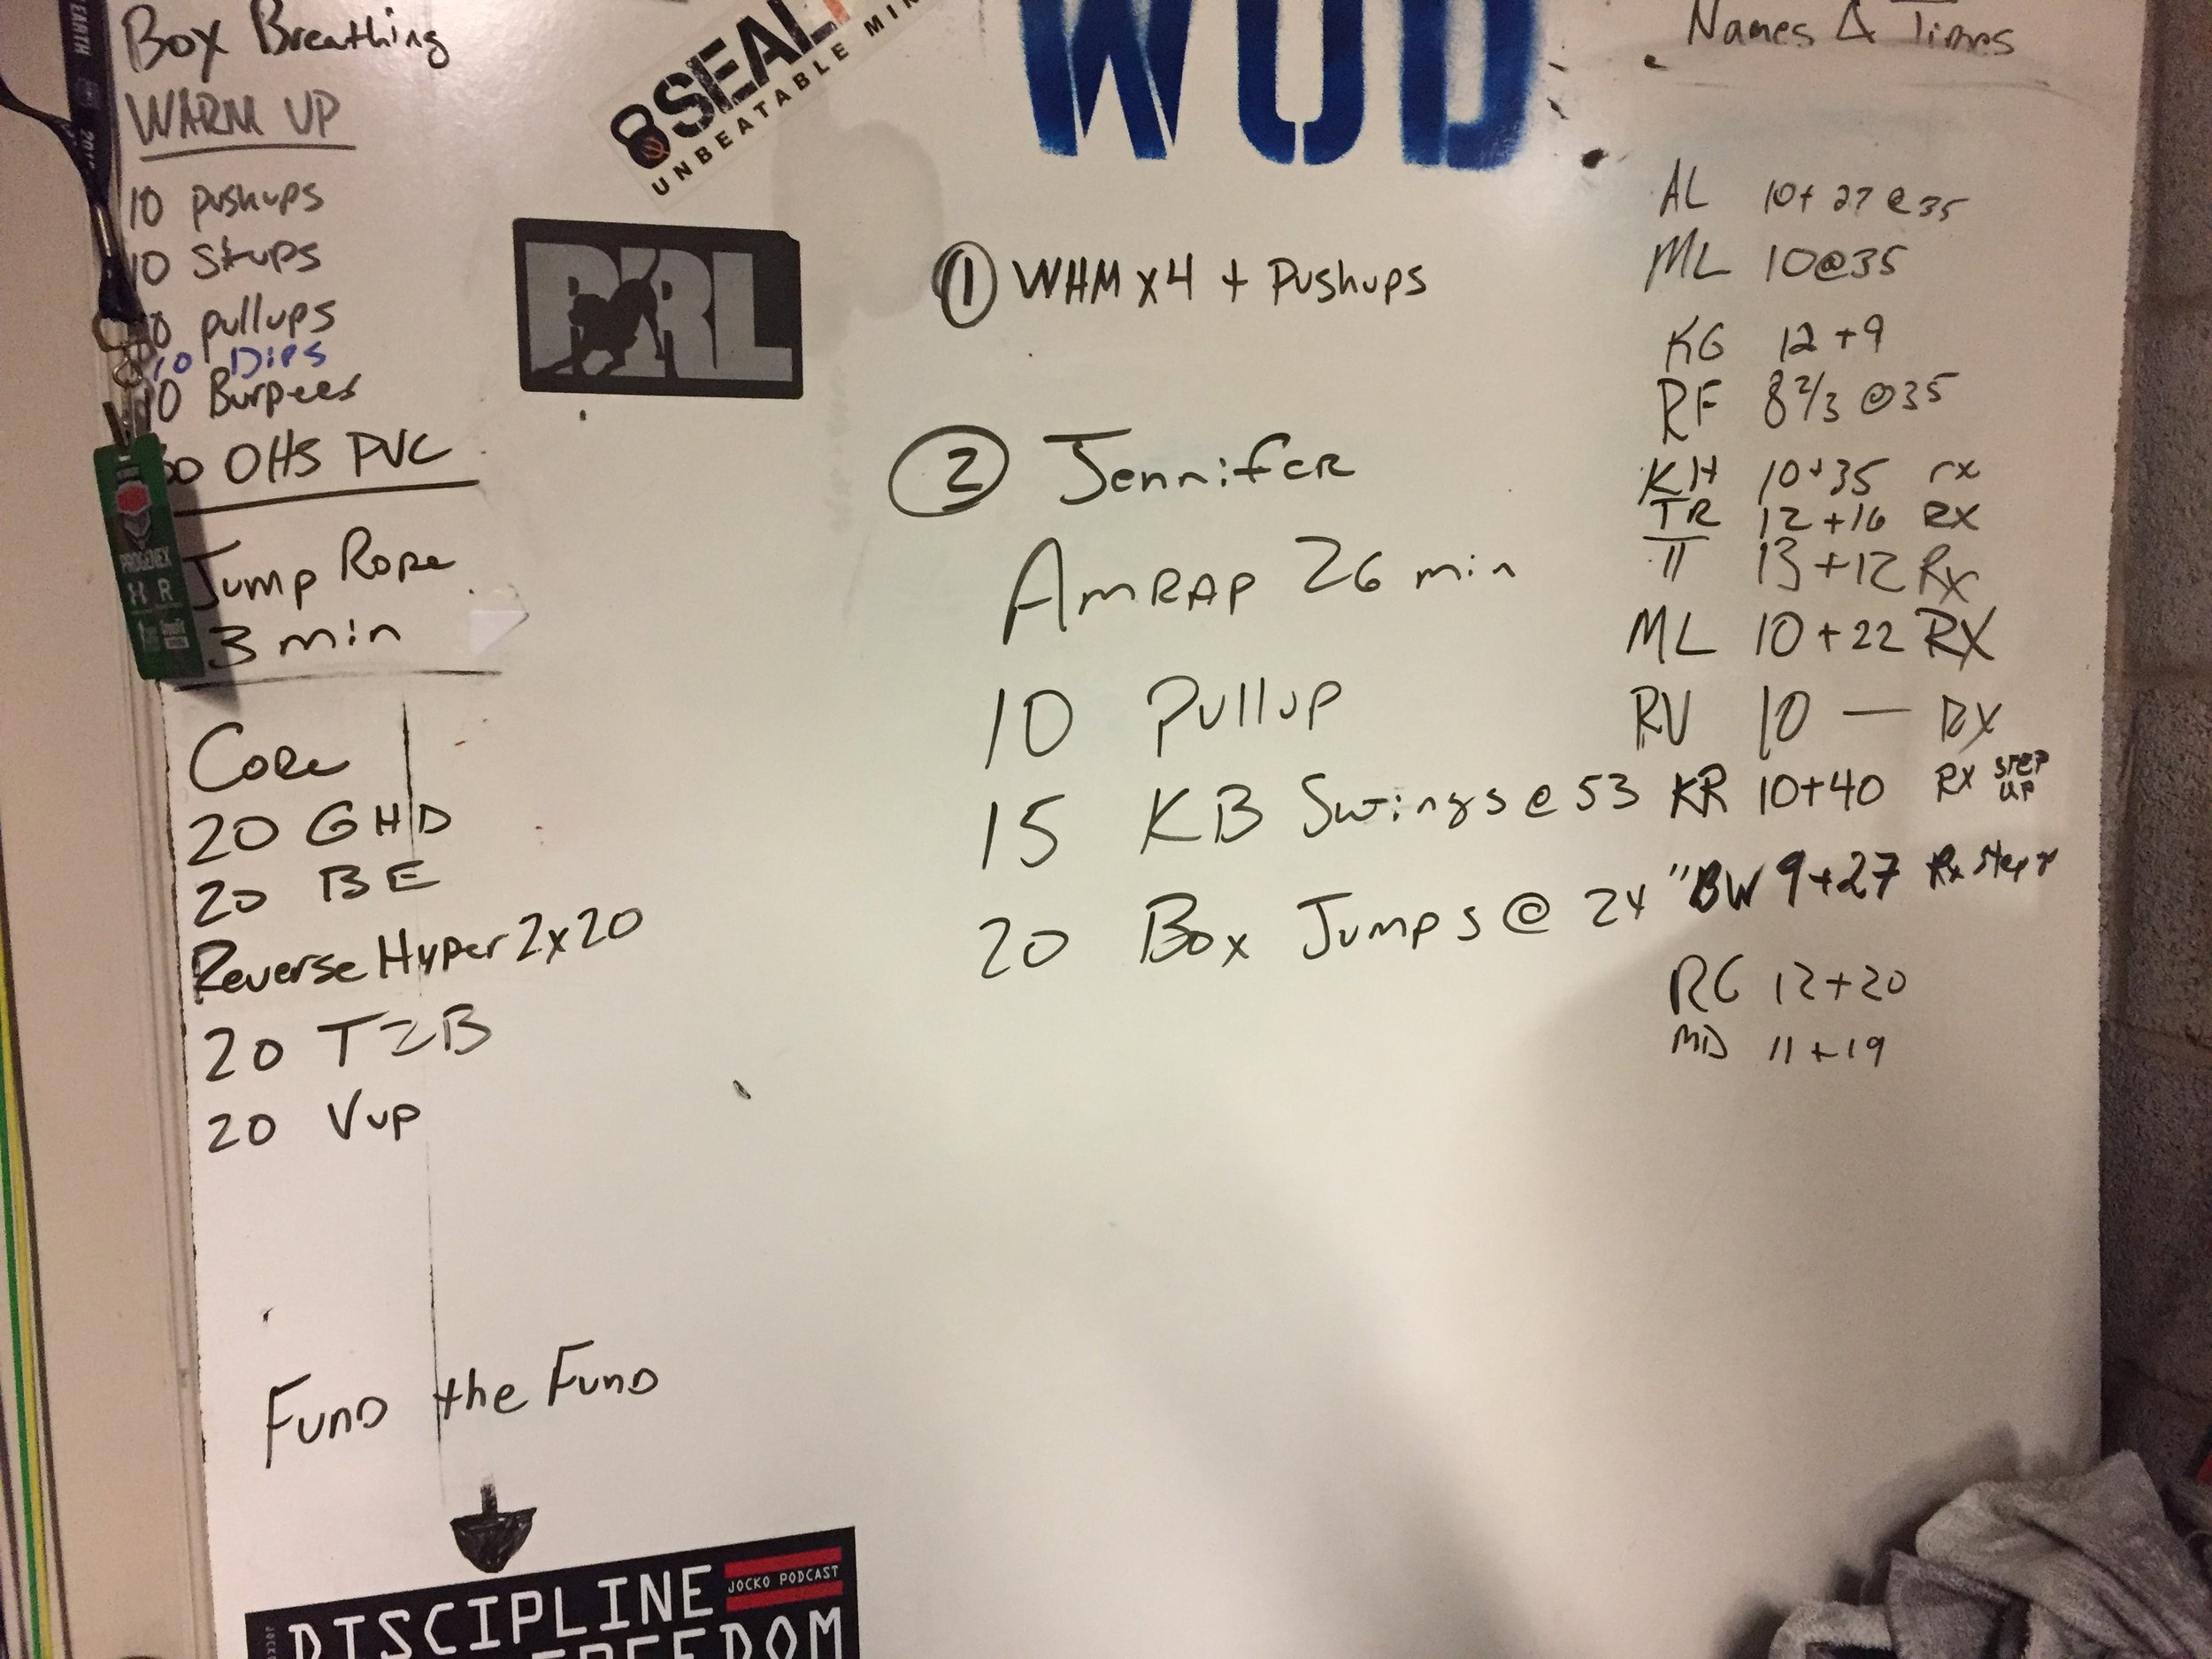 Box Breathing
WARM UP
10 pushups
10 Situps
10 pullups
10 Dips
10 Burpees
OHS PVC
Jump Rope
3 min
Core
20 GHD
20 BE
Reverse Hyper 2x20
20 T2B
20 Vup
Fund the Fund
DISCIPLINE
JOCKO PODCAST
FREEDOM
EARTH
PROGENEX
SEAL
UNBEATABLE
WOD
① WHM x4 + Pushups
② Jennifer
AMRAP 26 min
10 Pullup
15 KB Swings @ 53
20 Box Jumps @ 24"
Names & Times
AL 10+27@35
ML 10@35
KG 12+9
RF 8 2/3 @35
KH 10+35 rx
TR 12+16 RX
13+12 Rx
ML 10+22 RX
RV 10 — RX
KR 10+40 RX STEP UP
BW 9+27 Rx Step
RG 12+20
MD 11+19